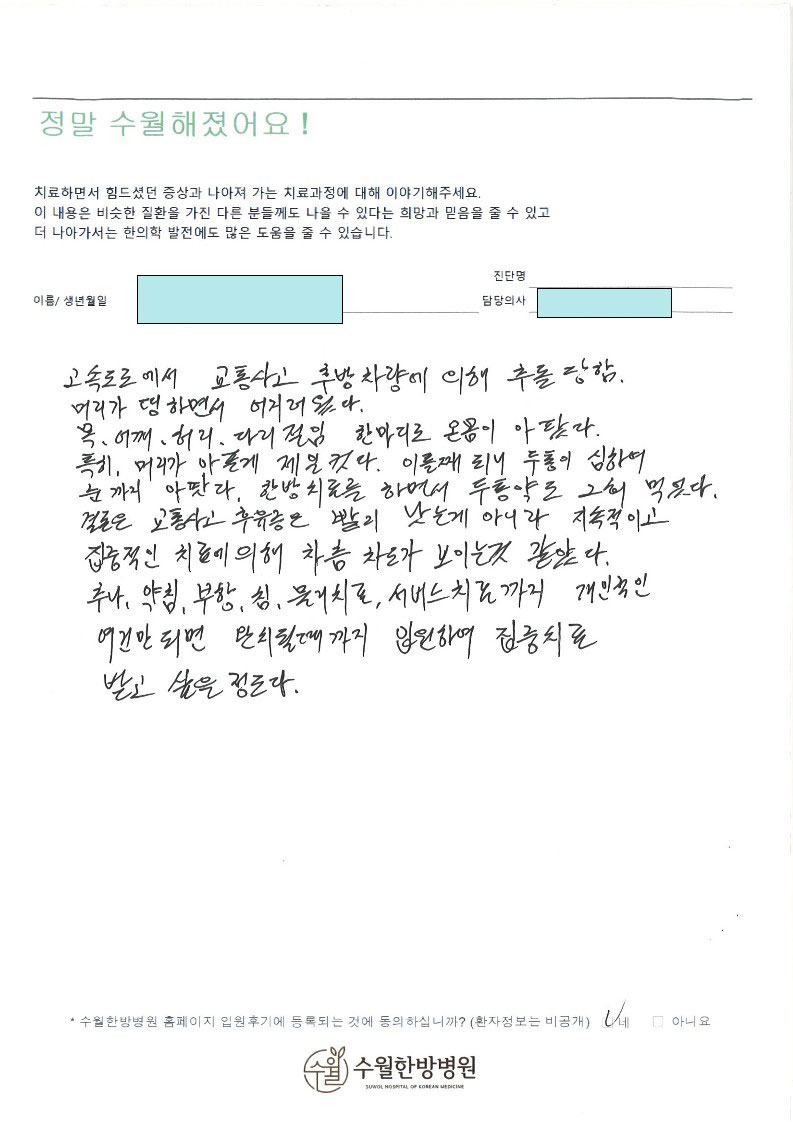 정말 수월해졌어요 !
치료하면서 힘드셨던 증상과 나아져 가는 치료과정에 대해 이야기해주세요.
이 내용은 비슷한 질환을 가진 다른 분들께도 나을 수 있다는 희망과 믿음을 줄 수 있고
더 나아가서는 한의학 발전에도 많은 도움을 줄 수 있습니다.
진단명
이름/ 생년월일 담당의사
고속도로에서 교통사고 후방차량에 의해 추돌 당함.
머리가 띵하면서 어지러웠다.
목、어깨、허리、다리 절임 한마디로 온몸이 아팠다.
특히, 머리가 아픈게 제일 컷다. 이틀째 되니 두통이 심하여
눈까지 아팟다. 한방치료를 하면서 두통약도 그히 먹었다.
결론은 교통사고 후유증은 빨리 낫는게 아니라 지속적이고
집중적인 치료에 의해 차츰 차도가 보이는것 같았다.
추나, 약침, 부항, 침, 물리치료, 서비스치료까지 개인적인
여건만 되면 완치될때까지 입원하여 집중치료
받고 싶을 정도다.
* 수월한방병원 홈페이지 입원후기에 등록되는 것에 동의하십니까? (환자정보는 비공개) 네 아니요
수월한방병원
SUWOL HOSPITAL OF KOREAN MEDICINE